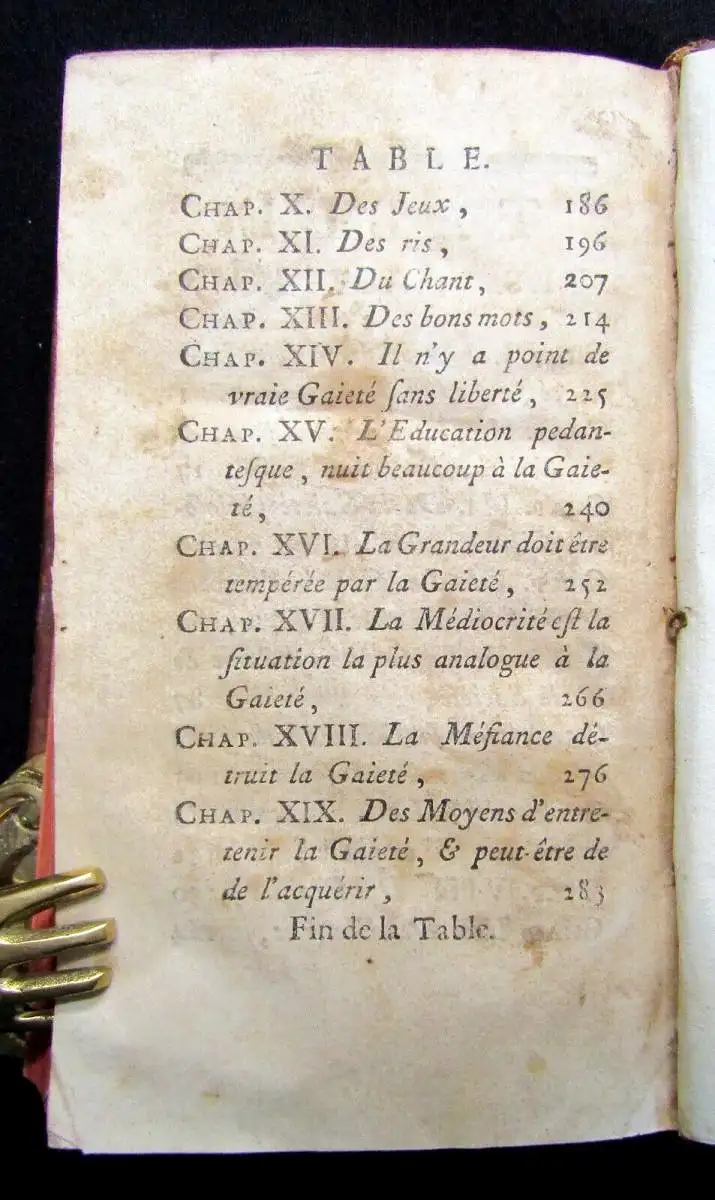 TABLE.
CHAP. X. Des Jeux, 186
CHAP. XI. Des ris, 196
CHAP. XII. Du Chant, 207
CHAP. XIII. Des bons mots, 214
CHAP. XIV. Il n'y a point de
vraie Gaieté ſans liberté, 225
CHAP. XV. L'Education pedan-
teſque, nuit beaucoup à la Gaie-
té, 240
CHAP. XVI. La Grandeur doit être
tempérée par la Gaieté, 252
CHAP. XVII. La Médiocrité eſt la
ſituation la plus analogue à la
Gaieté, 266
CHAP. XVIII. La Méfiance dé-
truit la Gaieté, 276
CHAP. XIX. Des Moyens d'entre-
tenir la Gaieté, & peut-être de
de l'acquérir, 283
Fin de la Table.